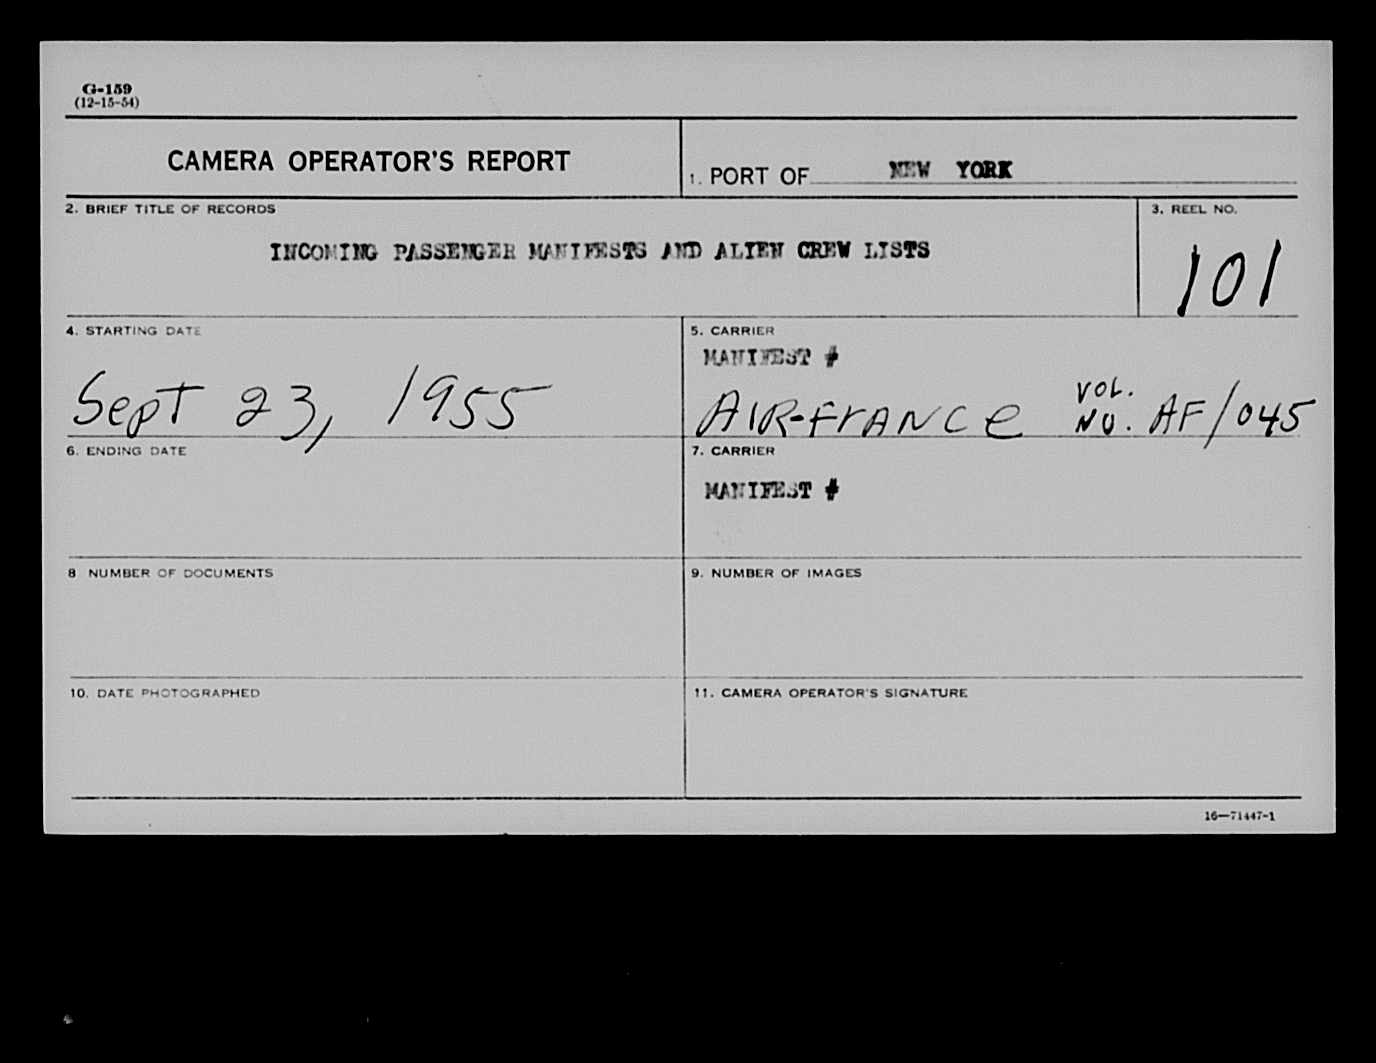 G-159
(12-15-54)
CAMERA OPERATOR'S REPORT
1. PORT OF NEW YORK
2. BRIEF TITLE OF RECORDS
INCOMING PASSENGER MANIFESTS AND ALIEN CREW LISTS
3. REEL NO.
101
4. STARTING DATE
Sept 23, 1955
5. CARRIER
MANIFEST #
AIR-FrANCe VOL. NO. AF/045
6. ENDING DATE
7. CARRIER
MANIFEST #
8 NUMBER OF DOCUMENTS
9. NUMBER OF IMAGES
10. DATE PHOTOGRAPHED
11. CAMERA OPERATOR'S SIGNATURE
16—71447-1